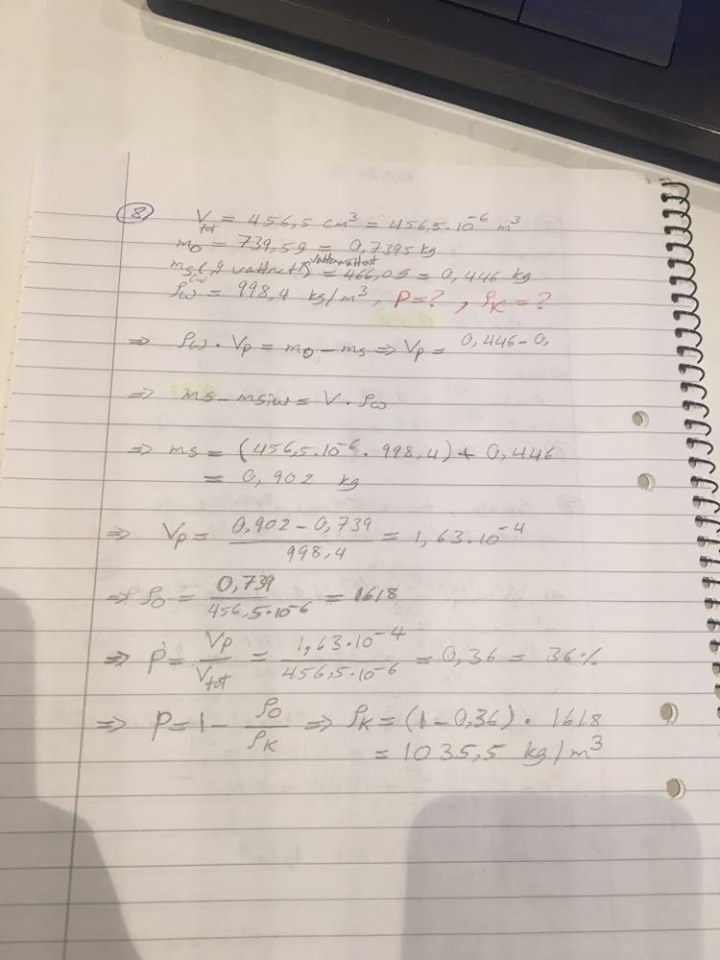 8) V_tot = 456,5 cm³ = 456,5·10⁻⁶ m³
m₀ = 739,5g = 0,7395 kg
vattenmättat
ms,(i vattnet) = 466,0g = 0,446 kg
ρw = 998,4 kg/m³, P=? , ρK = ?
⇒ ρw · Vp = m₀ - ms ⇒ Vp = 0,446-0,
⇒ ms - msiw = V · ρw
⇒ ms = (456,5·10⁻⁶ · 998,4) + 0,446
= 0,902 kg
⇒ Vp = (0,902 - 0,739)/998,4 = 1,63·10⁻⁴
⇒ ρ₀ = 0,739/456,5·10⁻⁶ = 1618
⇒ P = Vp/Vtot = 1,63·10⁻⁴/456,5·10⁻⁶ = 0,36 = 36%
⇒ P = 1 - ρ₀/ρK ⇒ ρK = (1-0,36) · 1618
= 1035,5 kg/m³